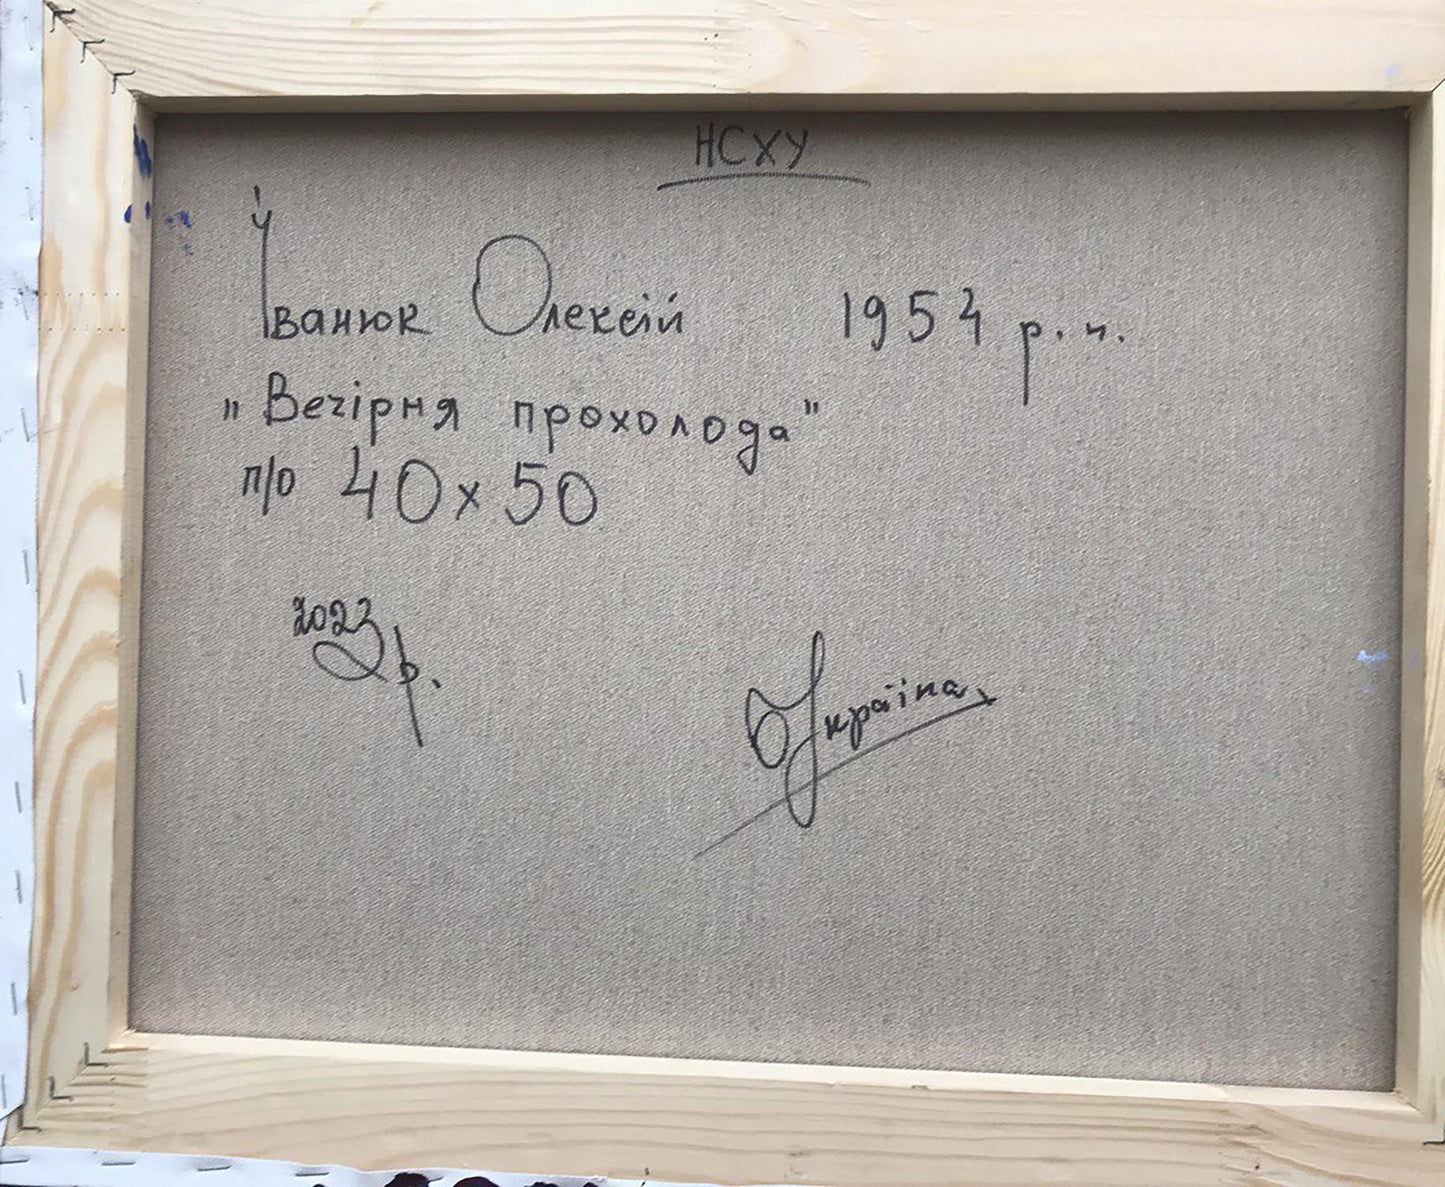 НСХУ
Іванюк Олексій 1954 р.н.
„Вечірня прохолода"
п/о 40х50
2023 р.
Україна